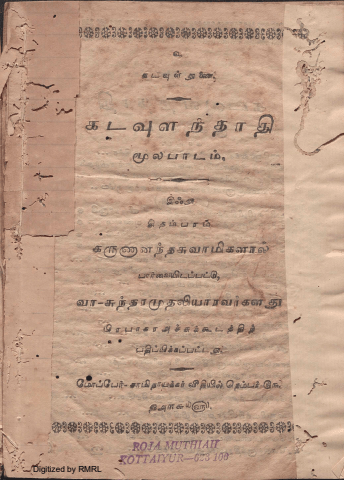 உ
கடவுள் துணை.
கடவுளந்தாதி
மூலபாடம்,
இஃது
சிதம்பரம்
கருணானந்தசுவாமிகளால்
பார்வையிடப்பட்டு,
வா-சுந்தரமுதலியாரவர்களது
பிரபாகர அச்சுக்கூடத்திற்
பதிப்பிக்கப்பட்டது.
வீதியில்
ROJA MUTHIAH
KOTTAIYUR-623 106
Digitized by RMRL